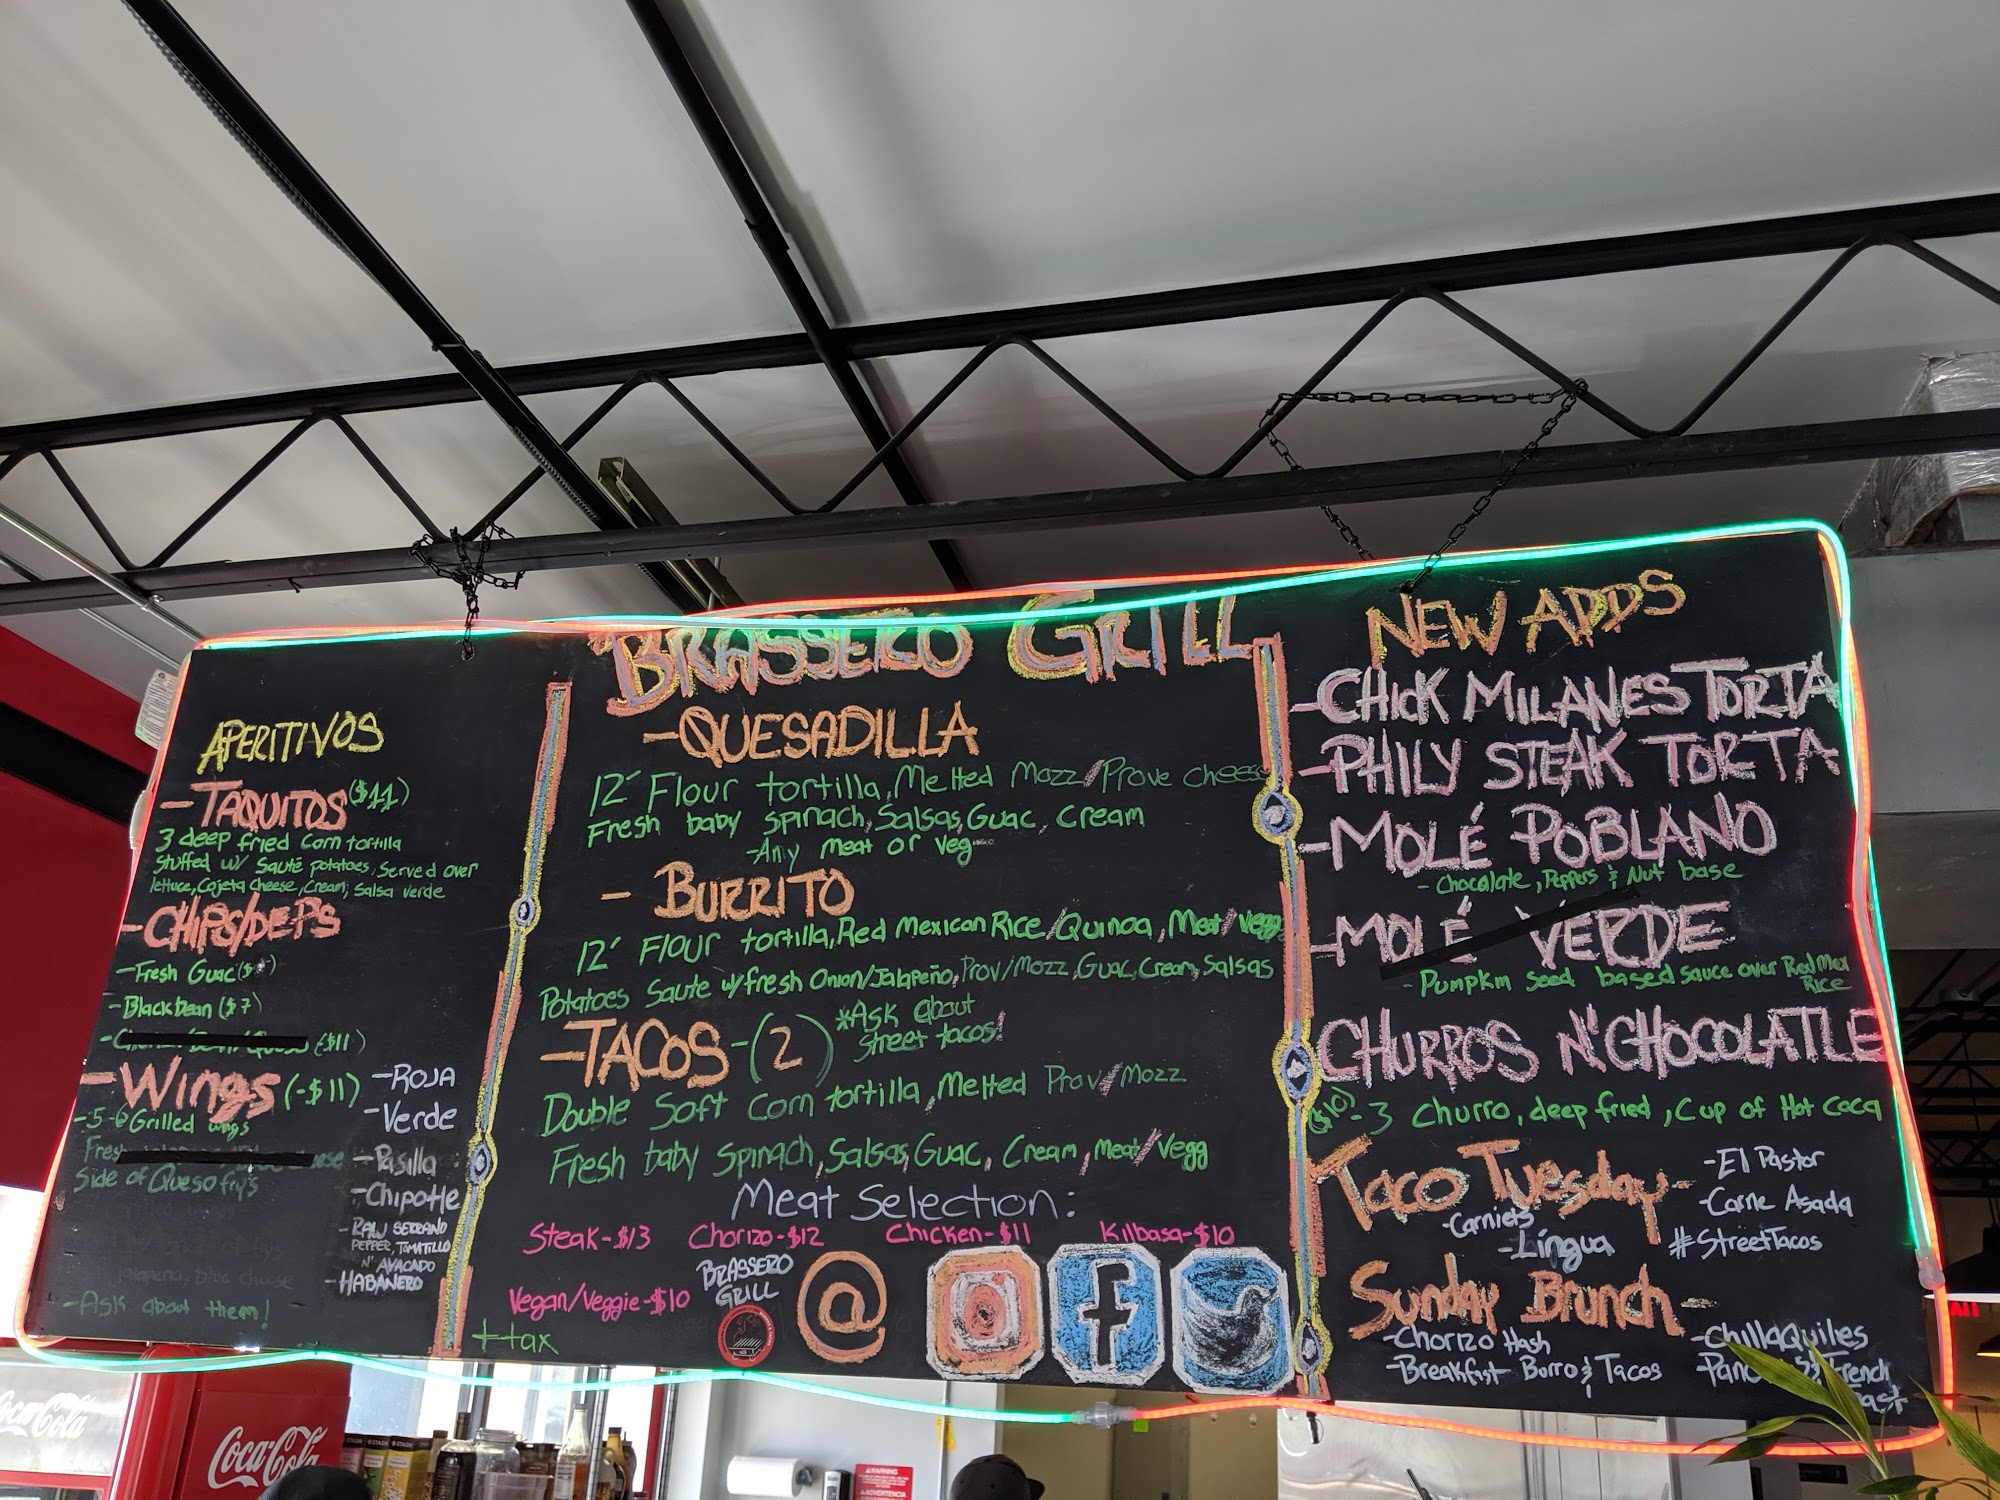 BRASSERO GRILL
APERITIVOS
-TAQUITOS ($11)
3 deep fried corn tortilla
stuffed w/ Sauté potatoes, Served over
lettuce, Cojeta cheese, Cream, Salsa verde
-CHIPS/DEPS
-Fresh Guac ($
-Black bean ($7)
($11)
-Wings (-$11)
-5-6 Grilled wings
Side of Queso fry's
jalapeña, blue cheese
-Ask about them!
-ROJA
-Verde
-Pasilla
-Chipotle
-RAW SERRANO
PEPPER, TOMATILLO
N' AVACADO
-HABANERO
-QUESADILLA
12" Flour tortilla, Melted Mozz/Prove cheese
Fresh baby spinach, Salsas, Guac, Cream
-Any meat or veg
- BURRITO
12" FLOUR tortilla, Red Mexican Rice/Quinoa, Meat/Vegg
Potatoes Saute w/fresh Onion/Jalapeño, Prov/Mozz, Guac, Cream, Salsas
-TACOS-(2) *Ask about
street tacos!
Double Soft Corn tortilla, Melted Prov/Mozz
Fresh baby Spinach, Salsas, Guac, Cream, Meat/Vegg
Meat Selection:
Steak-$13 Chorizo-$12 Chicken-$11 Kilbasa-$10
Vegan/Veggie-$10
+tax
BRASSERO
GRILL
@
f
NEW ADDS
-CHICK MILANES TORTA
-PHILY STEAK TORTA
-MOLÉ POBLANO
-Chocolate, Peppers & Nut base
-MOLÉ VERDE
-Pumpkin Seed based sauce over Red Mex
Rice
CHURROS N'CHOCOLATLE
($10)-3 Churro, deep fried, Cup of Hot Coca
Taco Tuesday-
-El Pastor
-Carne Asada
-Carniets
-Língua
#StreetTacos
Sunday Brunch-
-Chorizo Hash
-Breakfast Borro & Tacos
-ChillaQuiles
Coca-Cola
Coca-Cola
STASH
WARNING
ADVERTENCIA